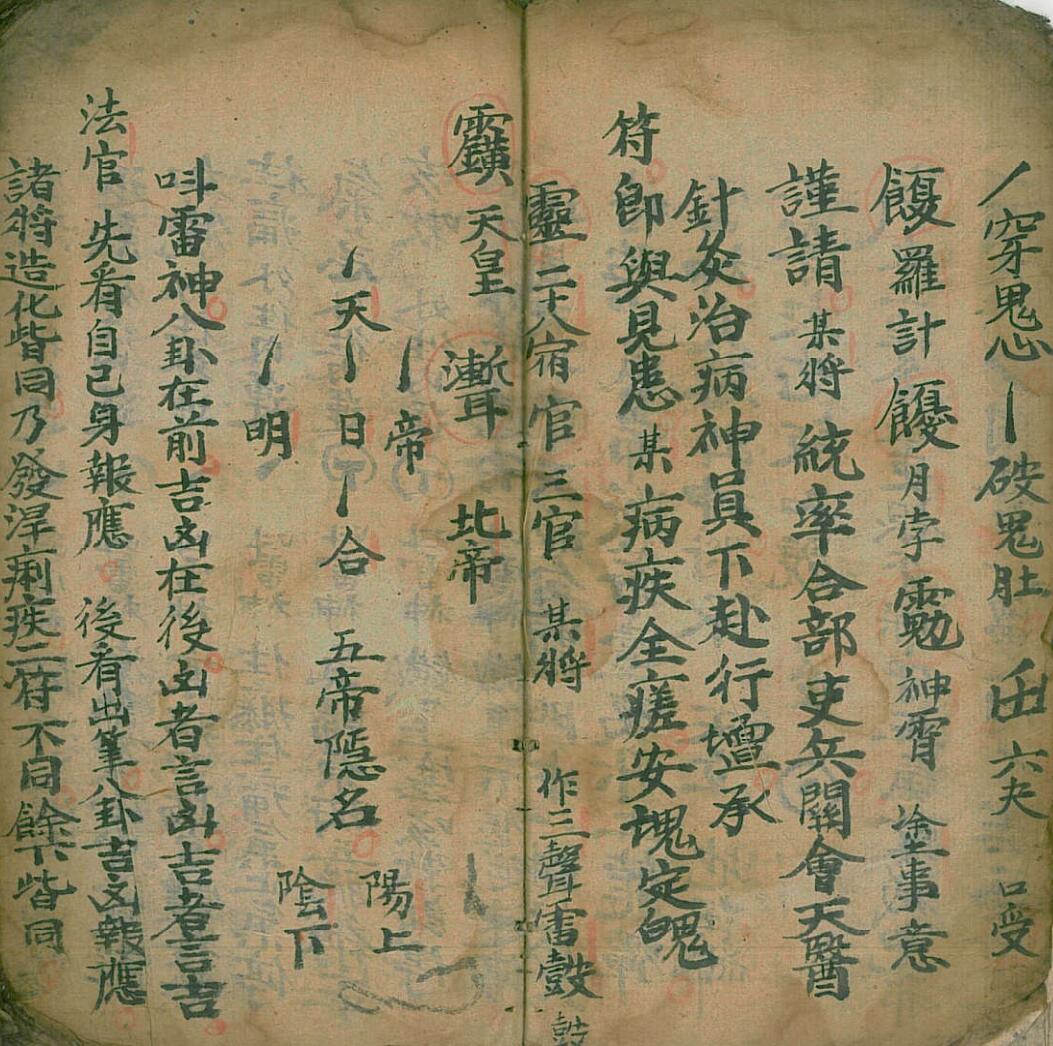 丿穿鬼心丨破鬼肚 六夬 口受
羅計 月孛 神霄 塗事意
謹請某將統率合部吏兵關會天醫
針灸治病神員下赴行壇承
符卽與見患某病疾全瘥安塊定魄
靈二十八宿官三官 某將 作三聲雷皷
天皇 北帝
丨帝 陽上
丿天丨日丨合 五帝隱名
丿明 陰下
呌雷神八卦在前吉凶在後凶者言凶吉者言吉
法官先看自己身報應 後看出筆八卦吉凶報應
諸將造化皆同乃發淂痢疾二符不同餘下皆同